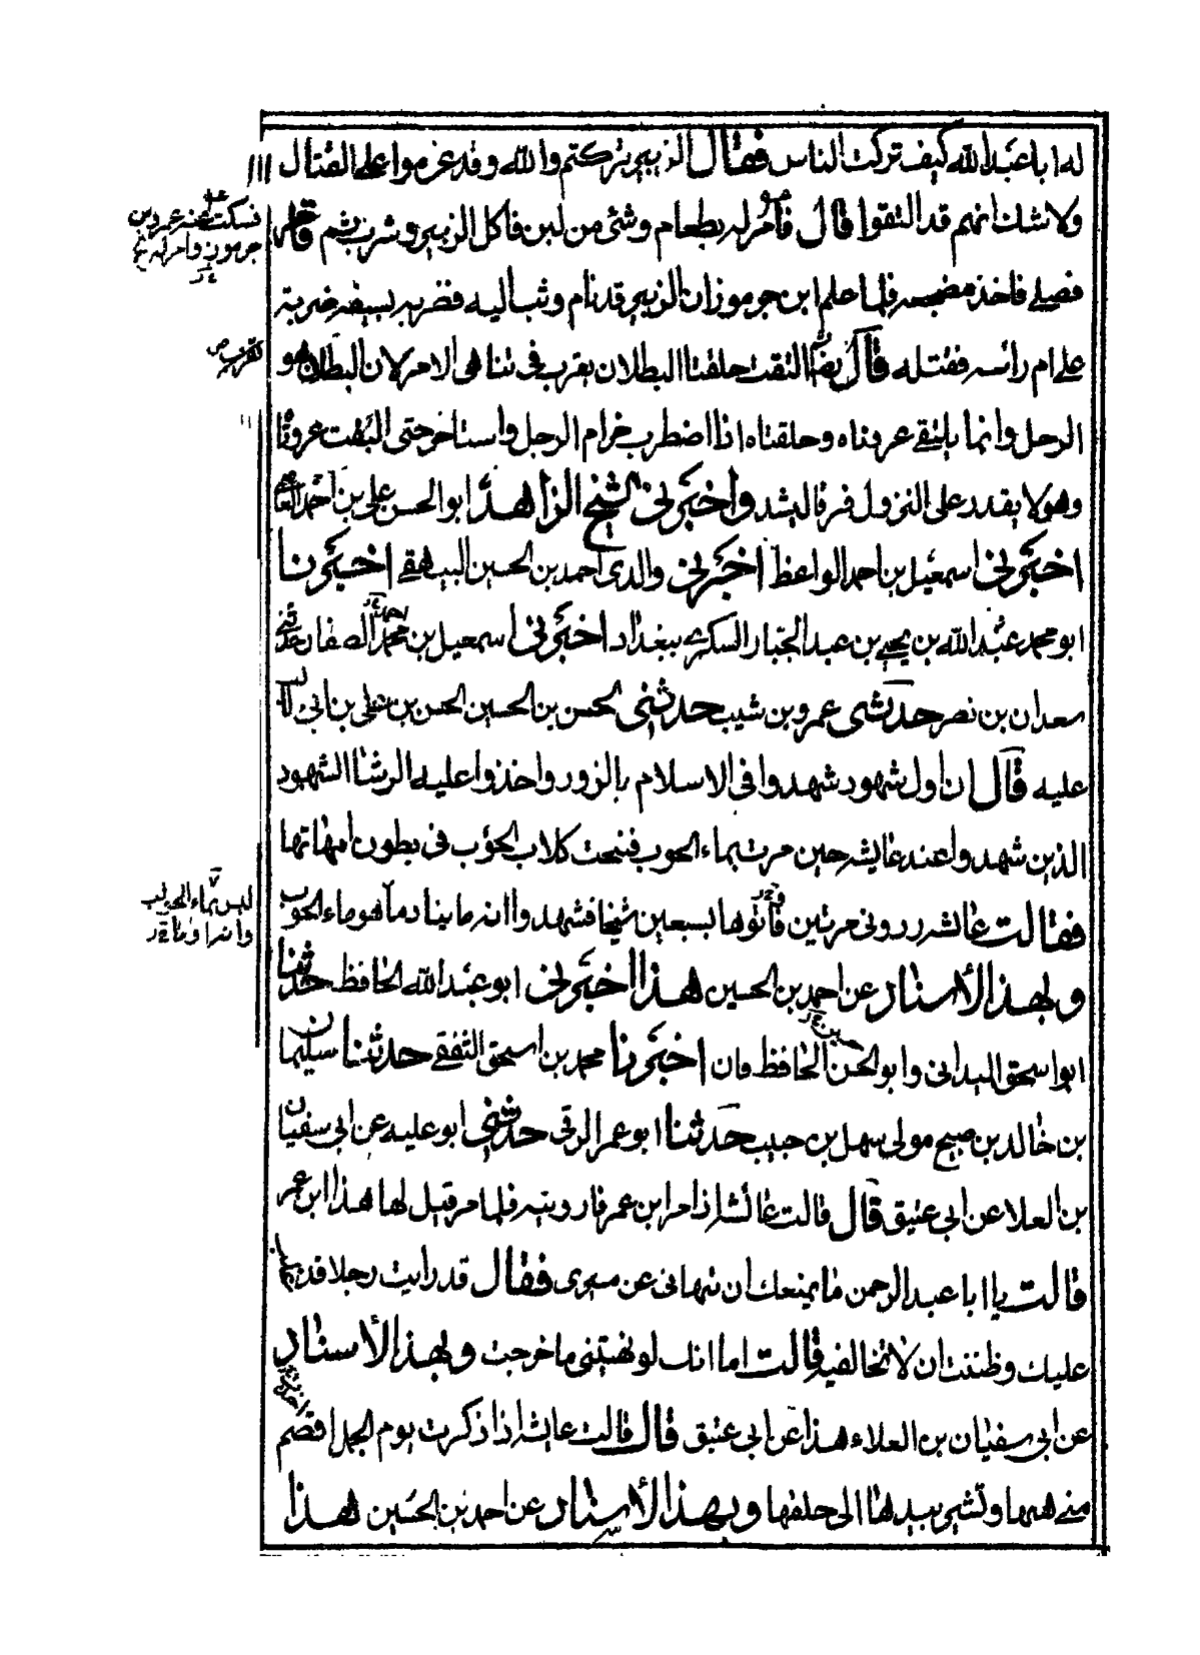 له ابا عبد الله كيف تركت الناس فقال الزبير تركتم والله وقد عزموا على القتال
ولا شك انهم قد التقوا قال فامر له بطعام وشئ من لبن فاكل الزبير وشرب ثم قام
فصلى فاخذ مضجعه فلما علم ابن جرموز ان الزبير قد نام وثب اليه فضربه بسيفه ضربة
على ام رأسه فقتله قال التقت حلقتا البطلان يقرب فى تناهى الامر لان البطان هو
الرحل وانما يلتقى عروتاه وحلقتاه اذا اضطرب حزام الرحل واستاخر حتى التقت عروتا
وهو لا يقدر على النزول فرقا ليشد واخبرنى الشيخ الزاهد ابو الحسن على بن احمد العاصمى
اخبرنى اسمعيل بن احمد الواعظ اخبرنى والدى احمد بن الحسين البيهقى اخبرنا
ابو محمد عبد الله بن يحيى بن عبد الجبار السكرى ببغداد اخبرنى اسمعيل بن محمد الصفار حدثنى
سعدان بن نصر حدثنى عمرو بن شيب حدثنى لحسن بن الحسين الحسن بن على بن ابى
عليه قال ان اول شهود شهدوا فى الاسلام بالزور واخذوا عليه الرشا الشهود
الذين شهدوا عند عايشه حين مرت بماء الحوب فنبحت كلاب الحؤب فى بطون امهاتها
فقالت عائشه ردونى مرتين فأتوها بسبعين شيخا فشهدوا انه ما بينا دما هو ماء الحوب
وبهذا الأسناد عن احمد بن الحسين هذا اخبرنى ابو عبد الله الحافظ حدثنا
ابو اسحق البدانى وابو الحسن الحافظ قان اخبرنا محمد بن اسحق الثقفى حدثنا سليمان
بن خالد بن صبيح مولى سهل بن حبيب حدثنا ابو عمر الرقى حدثنى ابو عليه عن ابى سفيان
بن العلا عن ابى عتيق قال قالت عائشه اذا مر ابن عمر فاروينه فلما مر قيل لها هذا ابن عمر
قالت يا ابا عبد الرحمن ما يمنعك ان تنهانى عن مسيرى فقال قد رايت رجلا قد
عليك وظننت ان لا تخالفيه قالت اما انك لو نهيتنى ما خرجت وبهذا الأسناد
عن ابى سفيان بن العلاء هذا عن ابى عتيق قال قالت عايشه اذا ذكرت يوم الجمل
منى ههنا وتشير بيدها الى حلقها وبهذا الأسناد عن احمد بن الحسين هذا
فسكت عنه عمرو بن
جرموز وامر له خ